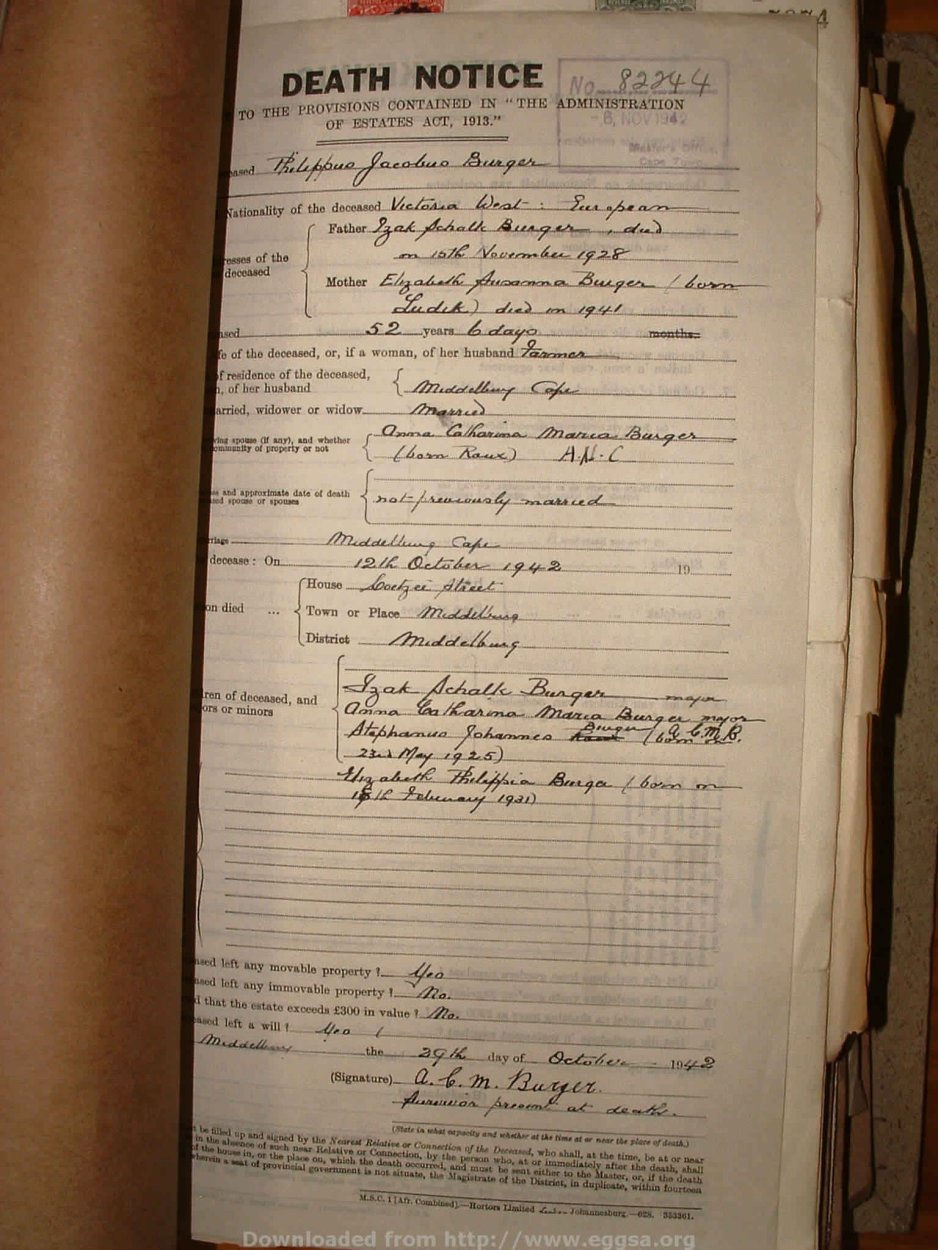 DEATH NOTICE
No. 82244
TO THE PROVISIONS CONTAINED IN "THE ADMINISTRATION
OF ESTATES ACT, 1913."
-6. NOV 1942
Master's Office
Cape Town
eased Philippus Jacobus Burger
Nationality of the deceased Victoria West : European
Father Izak Schalk Burger, died
resses of the
deceased
on 15th November 1928
Mother Elizabeth Susanna Burger (born
Ludik) died in 1941
ased 52 years 6 days months.
fe of the deceased, or, if a woman, of her husband Farmer
f residence of the deceased,
n, of her husband
Middelburg Cape
arried, widower or widow Married
ving spouse (if any), and whether
ommunity of property or not
Anna Catharina Maria Burger
(born Roux) A.N.C
es and approximate date of death
sed spouse or spouses
not previously married
rriage Middelburg Cape
decease: On 12th October 1942 19
House Coetzee Street
on died ... Town or Place Middelburg
District Middelburg
ren of deceased, and
ors or minors
Izak Schalk Burger major
Anna Catharina Maria Burger major
Stephanus Johannes Burger (born on A.C.M.B.
23rd May 1925)
Elizabeth Philippia Burger (born on
February 1931)
ased left any movable property? Yes
ased left any immovable property? No.
d that the estate exceeds £300 in value? No.
eased left a will? Yes
Middelburg the 29th day of October 1942
(Signature) A. C. M. Burger.
Survivor present at death.
(State in what capacity and whether at the time at or near the place of death.)
t be filled up and signed by the Nearest Relative or Connection of the Deceased, who shall, at the time, be at or near
in the absence of such near Relative or Connection, by the person who, at or immediately after the death, shall
of the house in, or the place on, which the death occurred, and must be sent either to the Master, or, if the death
wherein a seat of provincial government is not situate, the Magistrate of the District, in duplicate, within fourteen
M.S.C. 1 [Afr. Combined].—Hortors Limited Johannesburg.—628. 353361.
Downloaded from http://www.eggsa.org